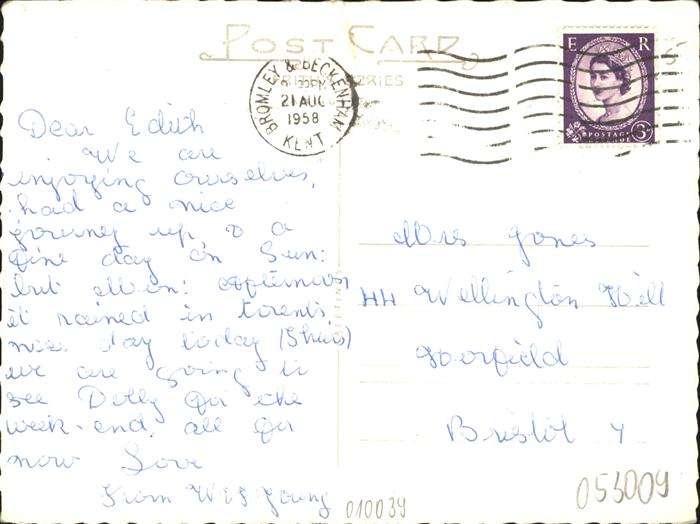 POST CARD
BROMLEY & BECKENHAM
21 AUG
1958
KENT
E R
POSTAGE
3D
Dear Edith
We are
enjoying ourselves,
had a nice
journey up & a
fine day on Sun:
but Mon: afternoon
it rained in torents
nice day today (Thurs)
we are going to
see Dolly for the
week-end, all for
now Love
from W & S Young
Mrs Jones
44 Wellington Hill
Horfield
Bristol 7
010039
053009